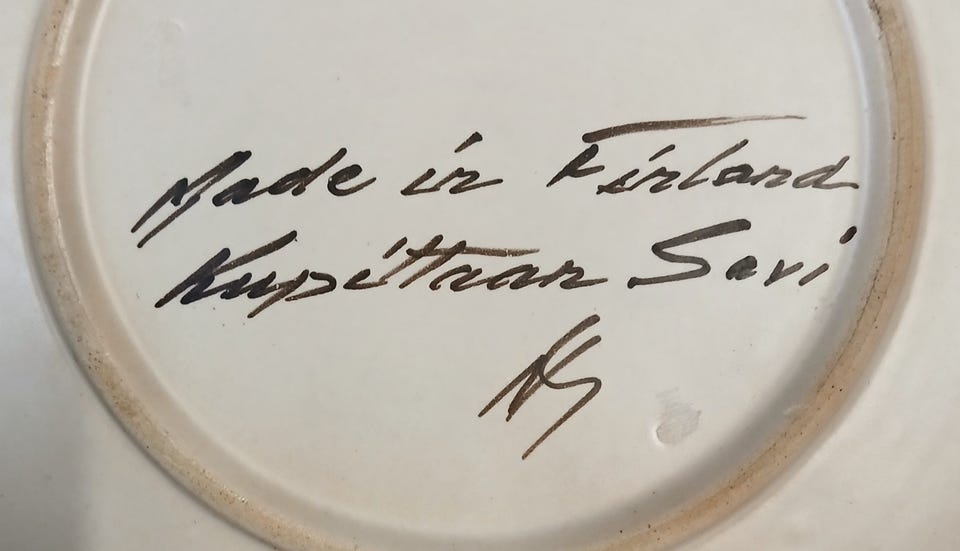 Made in Finland
Kupittaan Savi